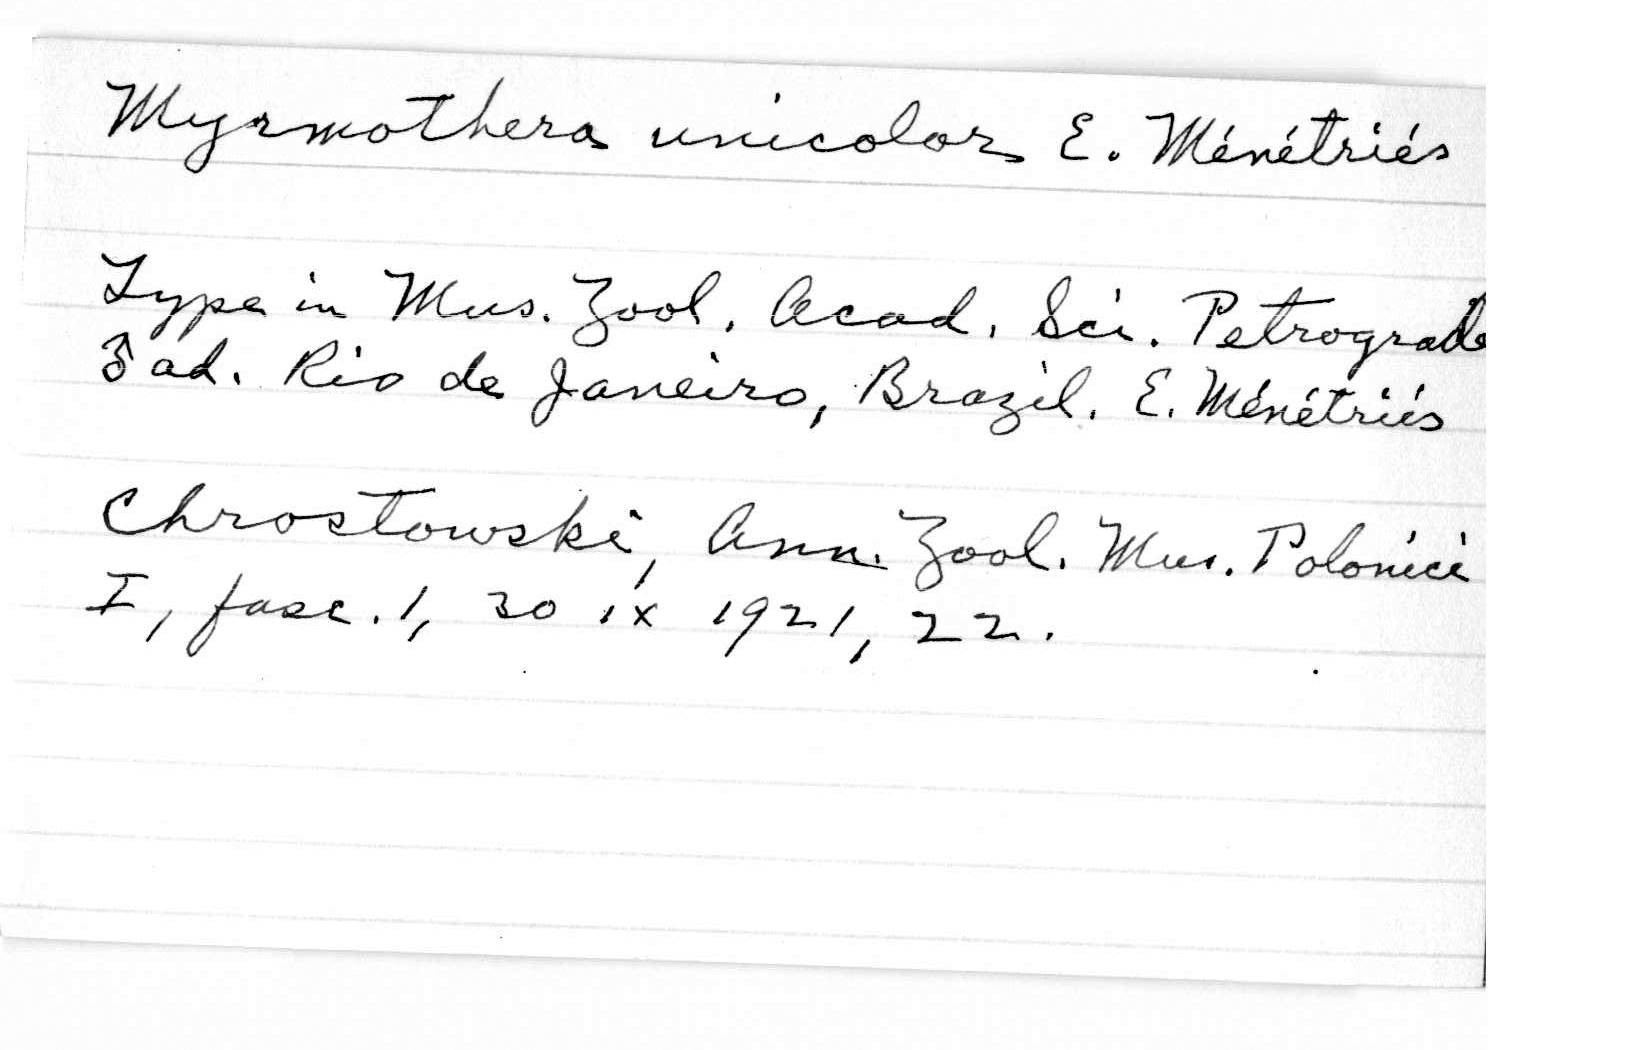 Myrmothera unicolor E. Ménétriés
Type in Mus. Zool. Acad. Sci. Petrograde
♂ ad. Rio de Janeiro, Brazil. E. Ménétriés
Chrostowski, Ann. Zool. Mus. Polonici
I, fasc. 1, 30 ix 1921, 22.